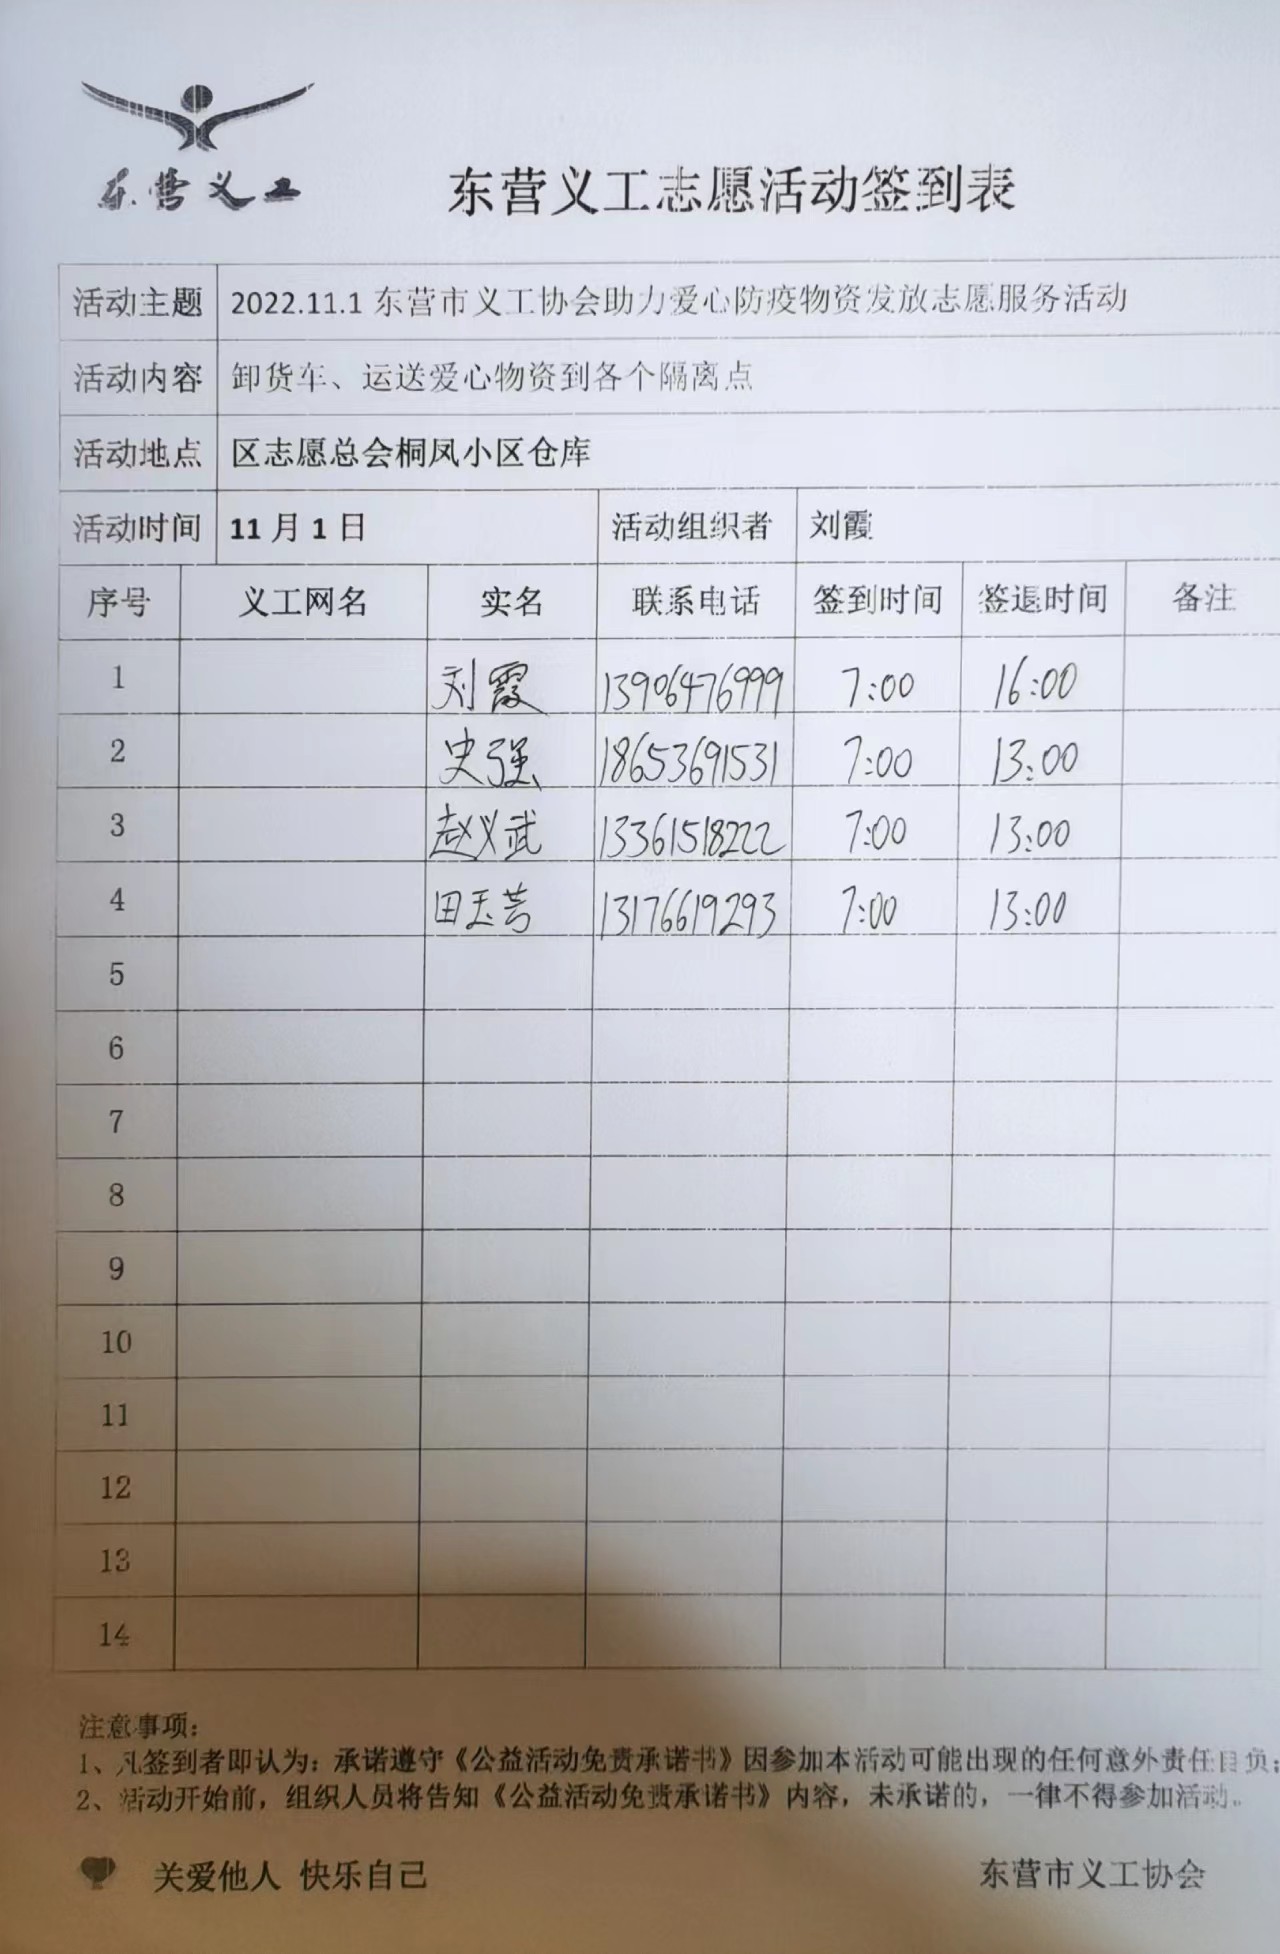 东营义工
东营义工志愿活动签到表
活动主题 2022.11.1 东营市义工协会助力爱心防疫物资发放志愿服务活动
活动内容 卸货车、运送爱心物资到各个隔离点
活动地点 区志愿总会桐凤小区仓库
活动时间 11 月 1 日 活动组织者 刘霞
序号 义工网名 实名 联系电话 签到时间 签退时间 备注
1 刘霞 13906476999 7:00 16:00
2 史强 18653691531 7:00 13:00
3 赵义武 13361518222 7:00 13:00
4 田玉芸 13176619293 7:00 13:00
5
6
7
8
9
10
11
12
13
14
注意事项：
1、凡签到者即认为：承诺遵守《公益活动免责承诺书》因参加本活动可能出现的任何意外责任自负；
2、活动开始前，组织人员将告知《公益活动免责承诺书》内容，未承诺的，一律不得参加活动。
关爱他人 快乐自己 东营市义工协会